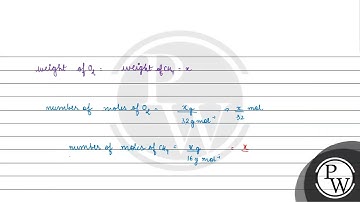 weight of O₂ = weight of CH₄ = x
number of moles of O₂ = x g / 32 g mol⁻¹ = x/32 mol
number of moles of CH₄ = x g / 16 g mol⁻¹ = x
P
W